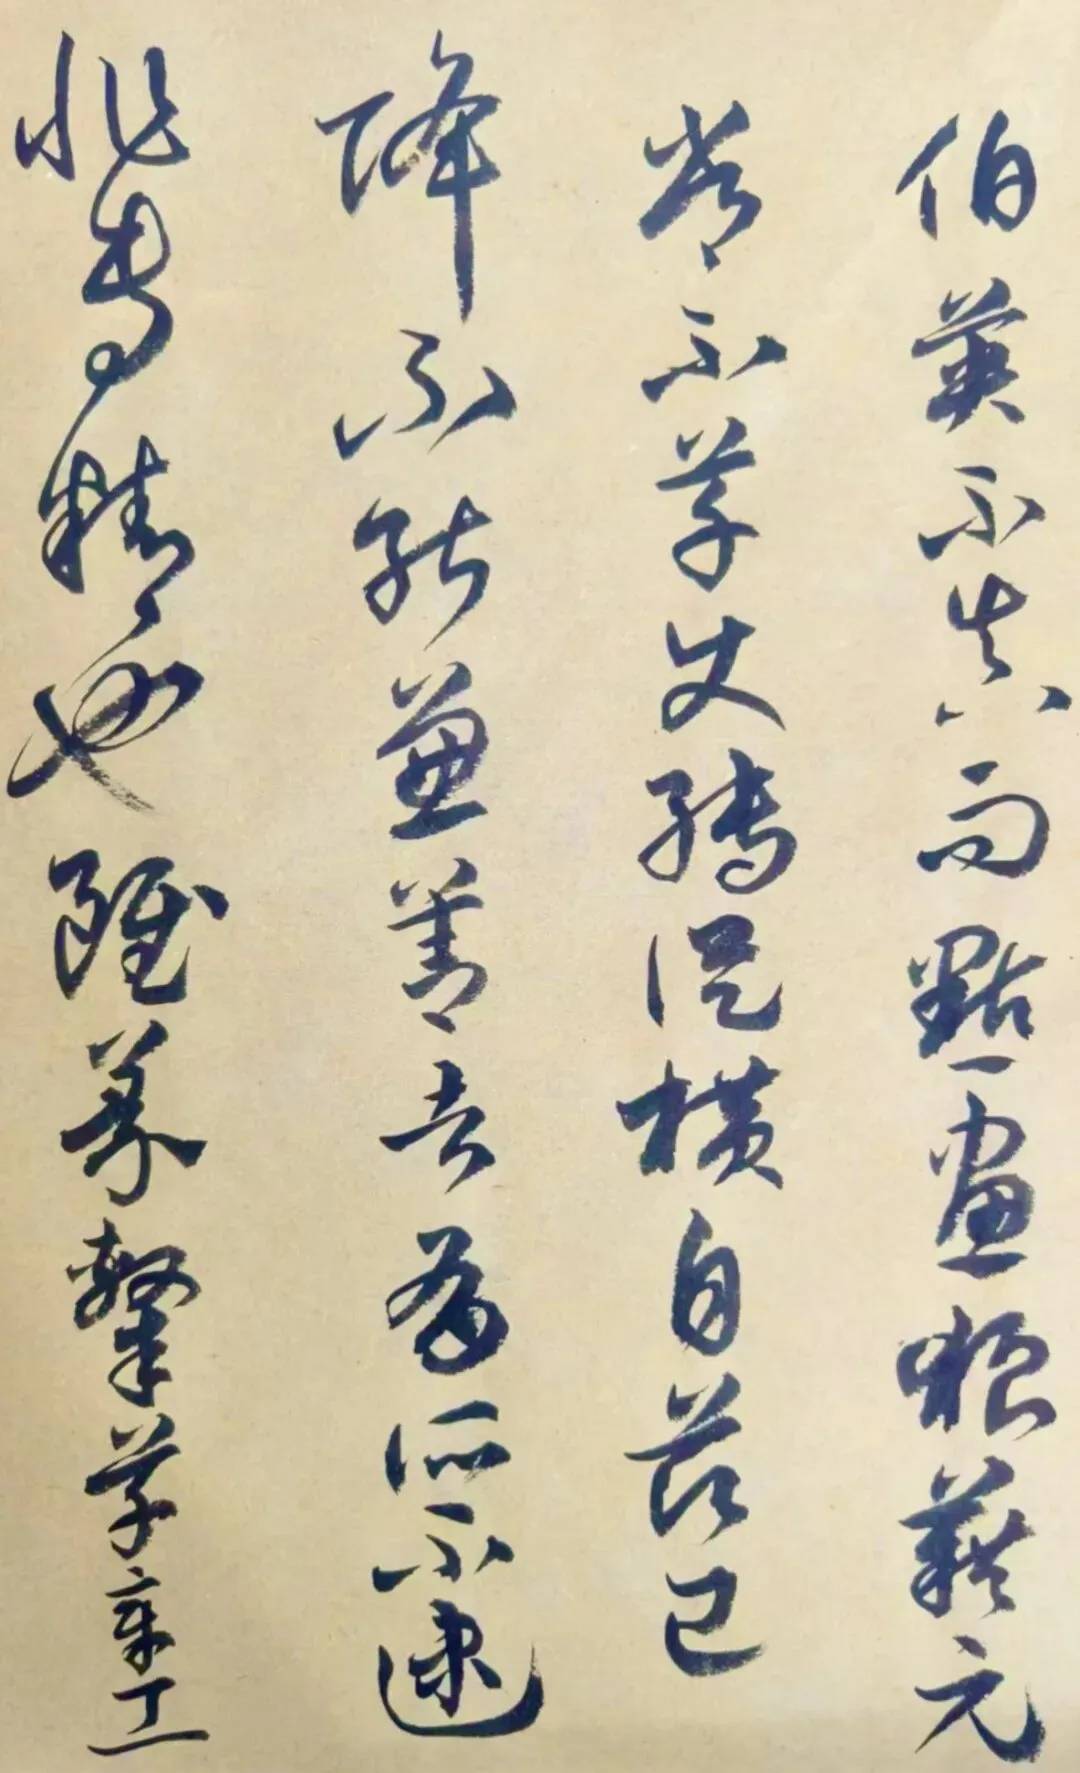 伯英不真而點畫狼藉元
常不草使轉縱橫自茲已
降不能兼善者有所不逮
非專精也雖篆隸草章工